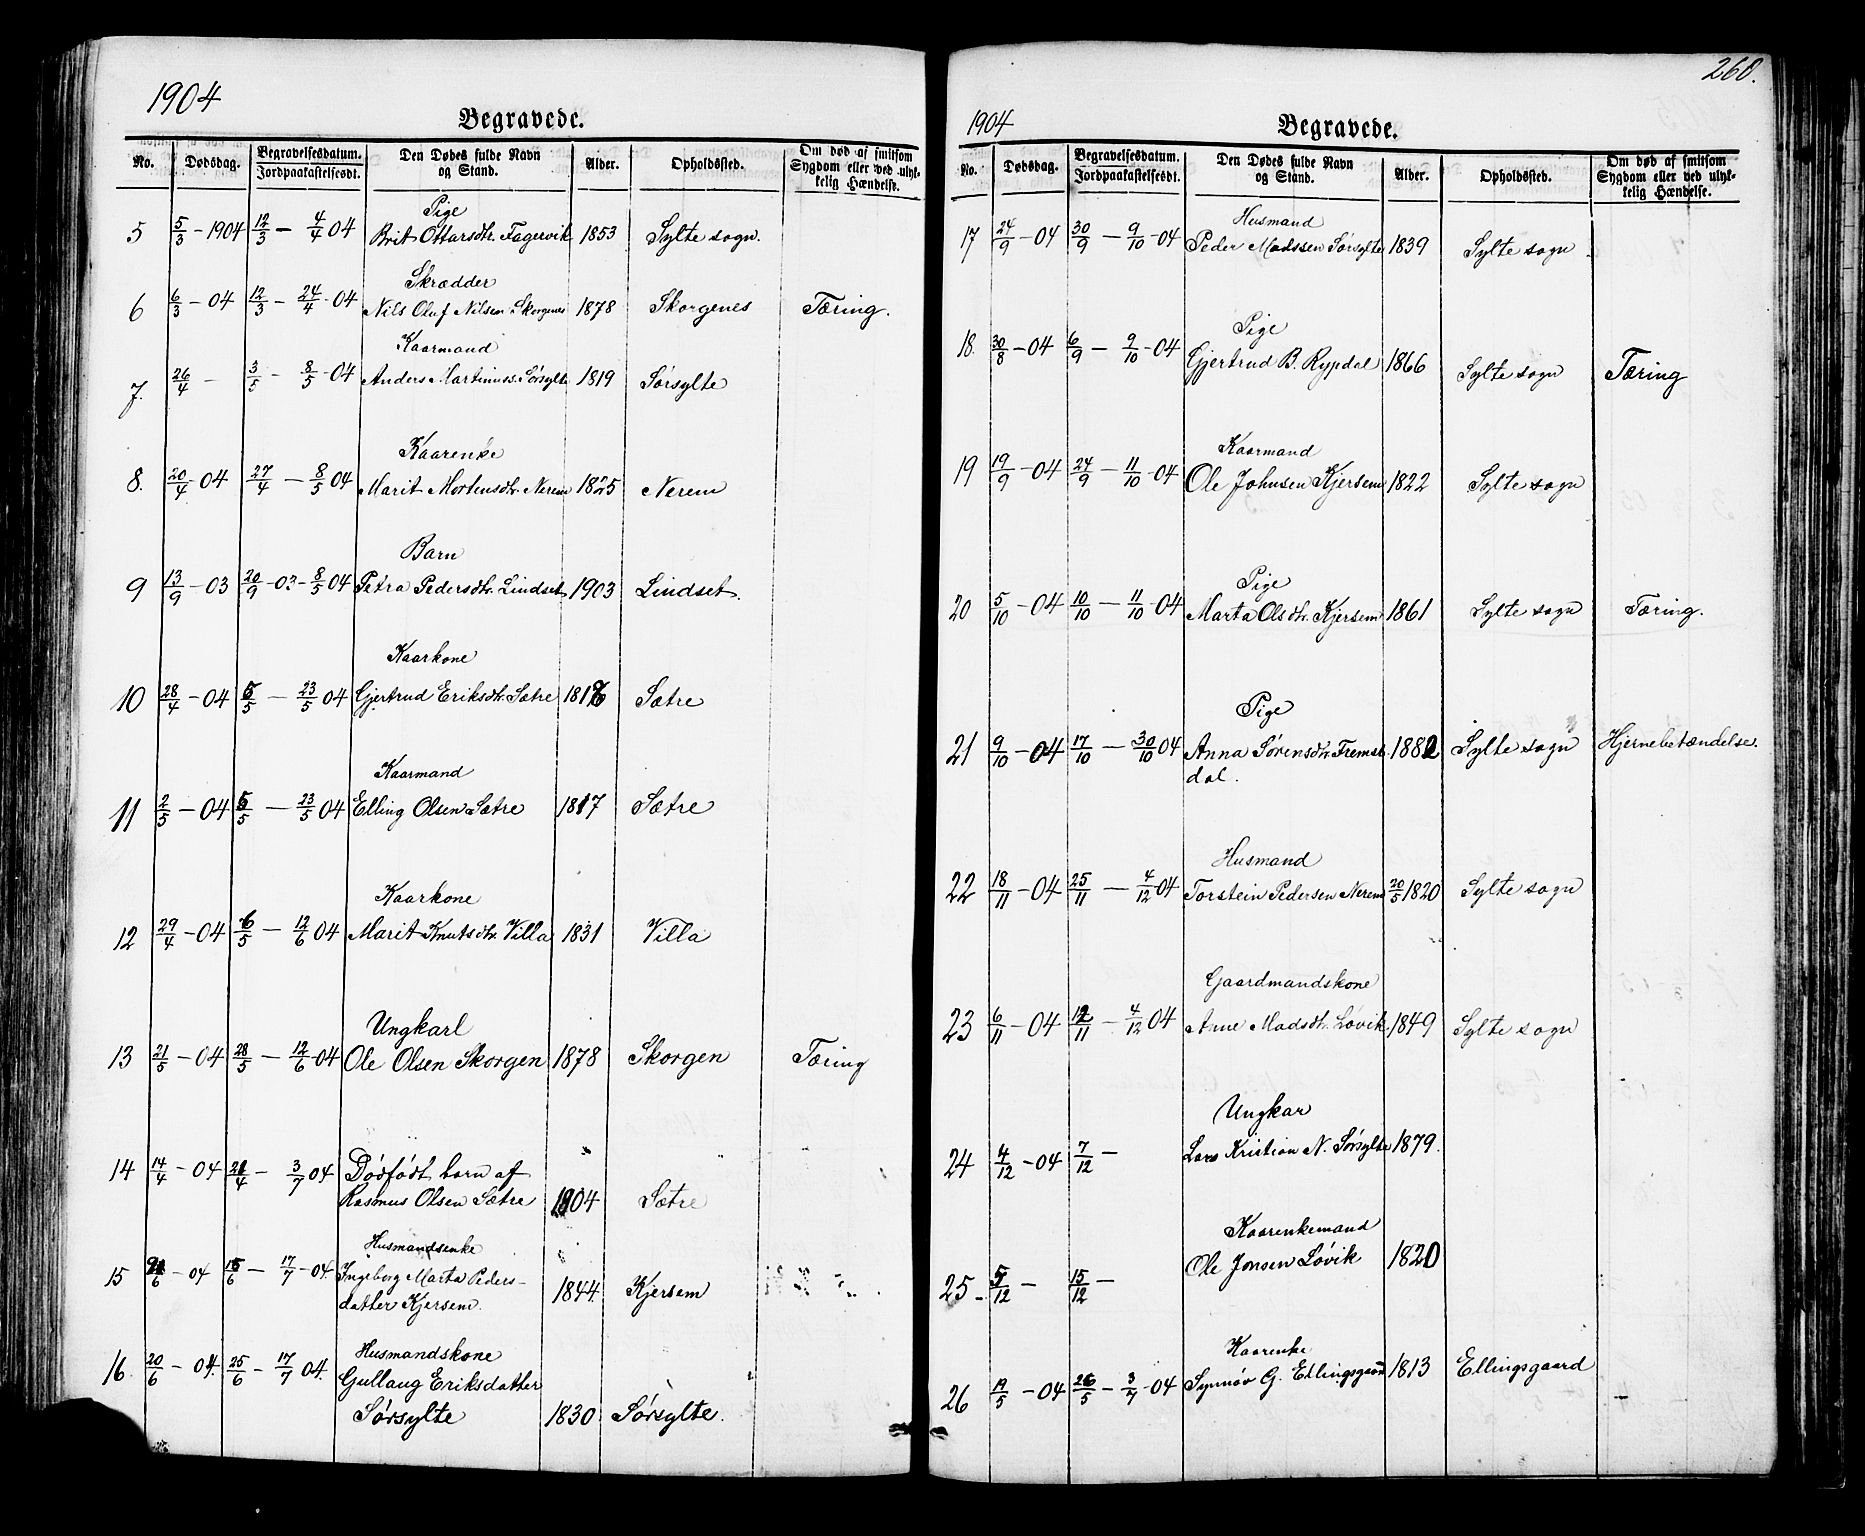 1904
Begravede.
No. Dødsdag. Begravelsesdatum. Jordpaakastelsesdt. Den Dødes fulde Navn og Stand. Alder. Opholdssted. Om død af smitsom Sygdom eller ved ulykkelig Hændelse.
Pige
5 5/3 - 1904 12/3 - 4/4 04 Brit Ottarsdtr. Fagervik 1853 Sylte sogn.
Skrædder
6 6/3 - 04 12/3 - 24/4 - 04 Nils Oluf Nilsen Skorgenes 1878 Skorgenes Tæring.
Kaarmand
7. 26/4 - 3/5 - 8/5 - 04 Anders Martinuss. Sørsylte 1819 Sørsylte
Kaarenke
8. 20/4 04 27/4 - 8/5 04 Marit Mortensdtr. Nerem 1825 Nerem
Barn
9 13/9 - 03 20/9 - 03 - 8/5 04 Petra Pedersdtr. Lindset 1903 Lindset.
Kaarkone
10 28/4 - 04 5/5 - 23/5 04 Gjertrud Eriksdtr. Sætre 1816 Sætre
Kaarmand
11 2/5 - 04 5/5 - 23/5 04 Elling Olsen Sætre 1817 Sætre
Kaarkone
12 29/4 - 04 6/5 - 12/6 04 Marit Knutsdtr. Villa 1831 Villa
Ungkarl
13 21/5 - 04 28/5 - 12/6 - 04 Ole Olsen Skorgen 1878 Skorgen Tæring
14 14/4 - 04 21/4 - 3/7 04 Dødfødt barn af
Rasmus Olsen Sætre 1904 Sætre
Husmandsenke
15 /6 - 04 15/6 - 17/7 - 04. Ingeborg Marta Peders-
datter Kjersem. 1844. Kjersem
Husmandskone
16. 20/6 - 04. 25/6 - 17/7 04. Gullaug Eriksdatter
Sørsylte 1830 Sørsylte.
260.
1904
Begravede.
No. Dødsdag. Begravelsesdatum. Jordpaakastelsesdt. Den Dødes fulde Navn og Stand. Alder. Opholdssted. Om død af smitsom Sygdom eller ved ulykkelig Hændelse.
Husmand
17 24/9 - 04 30/9 - 9/10 - 04 Peder Madssen Sørsylte 1839 Sylte sogn.
Pige
18. 30/8 - 04 6/9 - 9/10 - 04 Gjertrud B. Rypdal 1866 Sylte sogn Tæring
Kaarmand
19 19/9 - 04 24/9 - 11/10 - 04 Ole Johnsen Kjersem 1822 Sylte sogn
Pige
20 5/10 - 04 10/10 - 11/10 - 04 Marta Olsdtr. Kjersem 1861 Sylte sogn Tæring.
Pige
21 9/10 - 04 17/10 - 30/10 04 Anna Sørensdtr. Fremst
dal. 1882 Sylte sogn Hjernebetændelse.
Husmand
22 18/11 - 04 25/11 - 4/12 04 Torstein Pedersen Nerem 20/5 1820 Sylte sogn
Gaardmandskone
23 6/11 - 04 12/11 - 4/12 04 Anne Madsdtr. Løvik. 1849 Sylte sogn
Ungkar
24 4/12 - 04 7/12 - Lars Kristian N. Sørsylte 1879.
Kaarenkemand
25. - 5/12 - 15/12 - Ole Jonsen Løvik 1820
Kaarenke
26 19/5 - 04 26/5 - 3/7 - 04 Synnøv G. Ellingsgaard 1813 Ellingsgaard